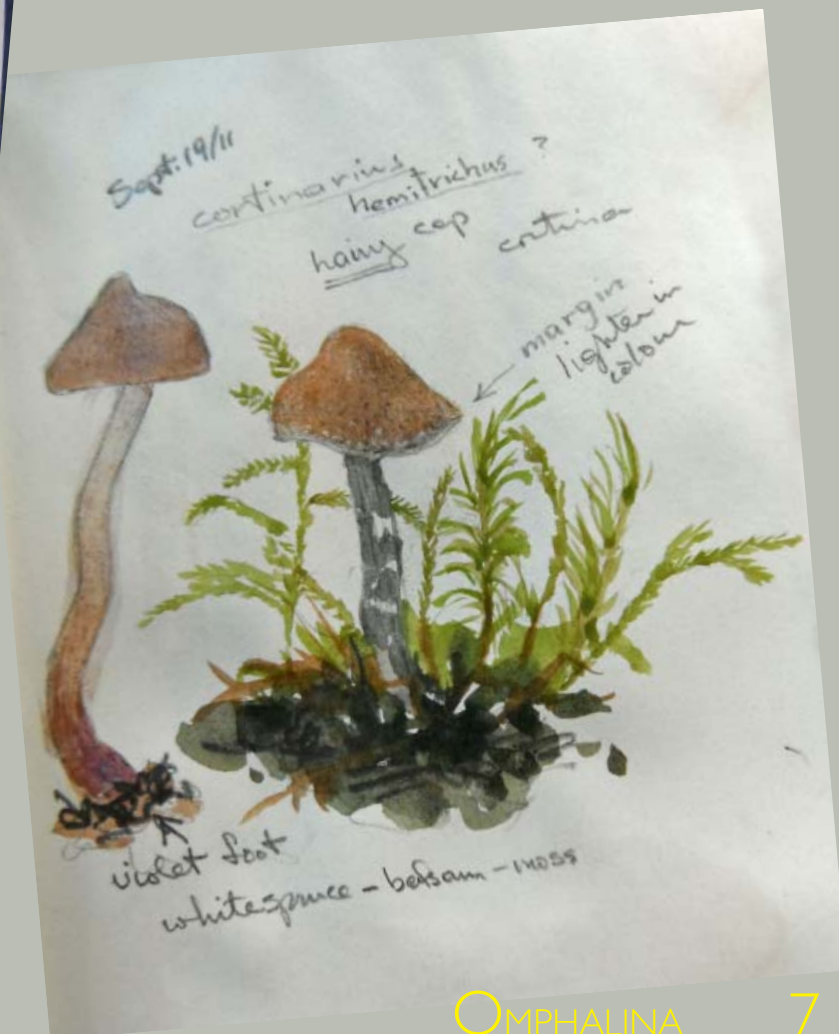 Sept. 19/11
cortinarius
hemitrichus ?
hairy cap
cortina
margin
lighter in
colour
violet foot
whitespruce - balsam - moss
OMPHALINA 7